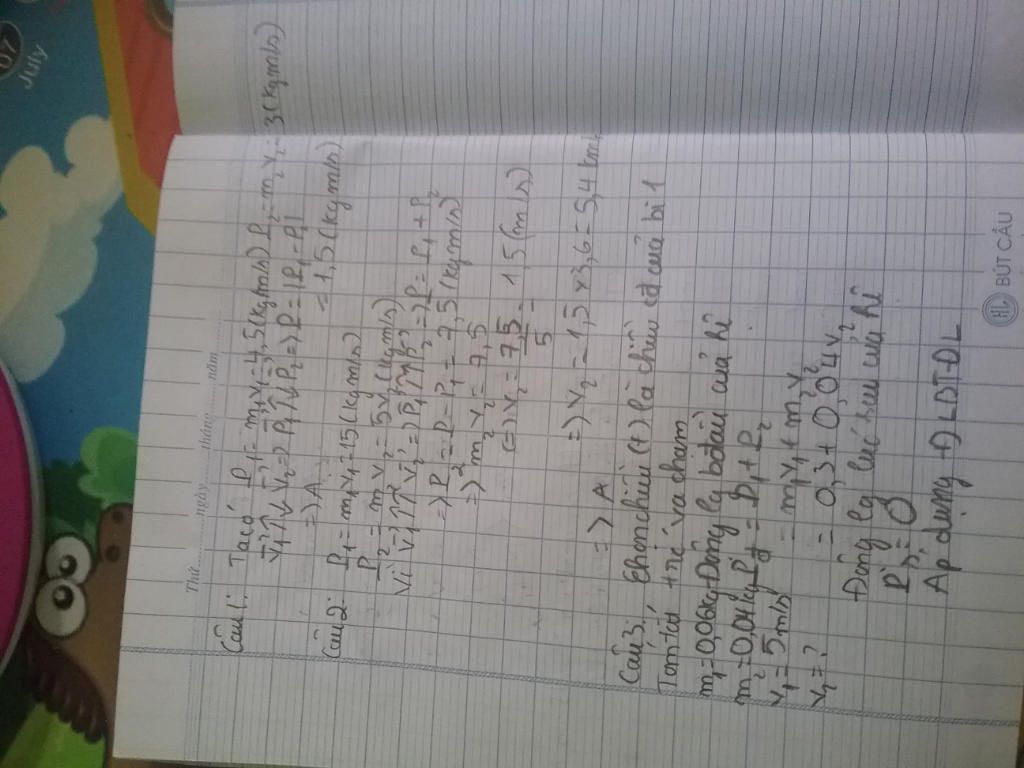 07
July
Thứ.........ngày.........tháng.........năm.........
Câu 1: Ta có P₁ = m₁v₁ = 4,5 (kgm/s) P₂ = m₂v₂ = 3 (kgm/s)
v₁ ↑↓ v₂ => P₁ ↑↓ P₂ => P = |P₁ - P₂|
=> A = 1,5 (kgm/s)
Câu 2: P₁ = m₁v₁ = 15 (kgm/s)
P₂ = m₂v₂ = 5v₂ (kgm/s)
Vì v₁ ↑↑ v₂ => P₁ ↑↑ P₂ => P = P₁ + P₂
=> P₂ = P - P₁ = 7,5 (kgm/s)
=> m₂v₂ = 7,5
(=) v₂ = 7,5/5 = 1,5 (m/s)
=> v₂ = 1,5 × 3,6 = 5,4 km/
=> A
Câu 3: Chọn chiều (+) là chiều cđ của bi 1
Tóm tắt trước va chạm
m₁ = 0,06kg Động lg bđầu của hệ
m₂ = 0,04kg P đ = P₁ + P₂
v₁ = 5m/s = m₁v₁ + m₂v₂
v₂ = ? = 0,3 + 0,04v₂
Động lg lúc sau của hệ
Ps = 0
Áp dụng ĐLBTĐL
BÚT CÂU